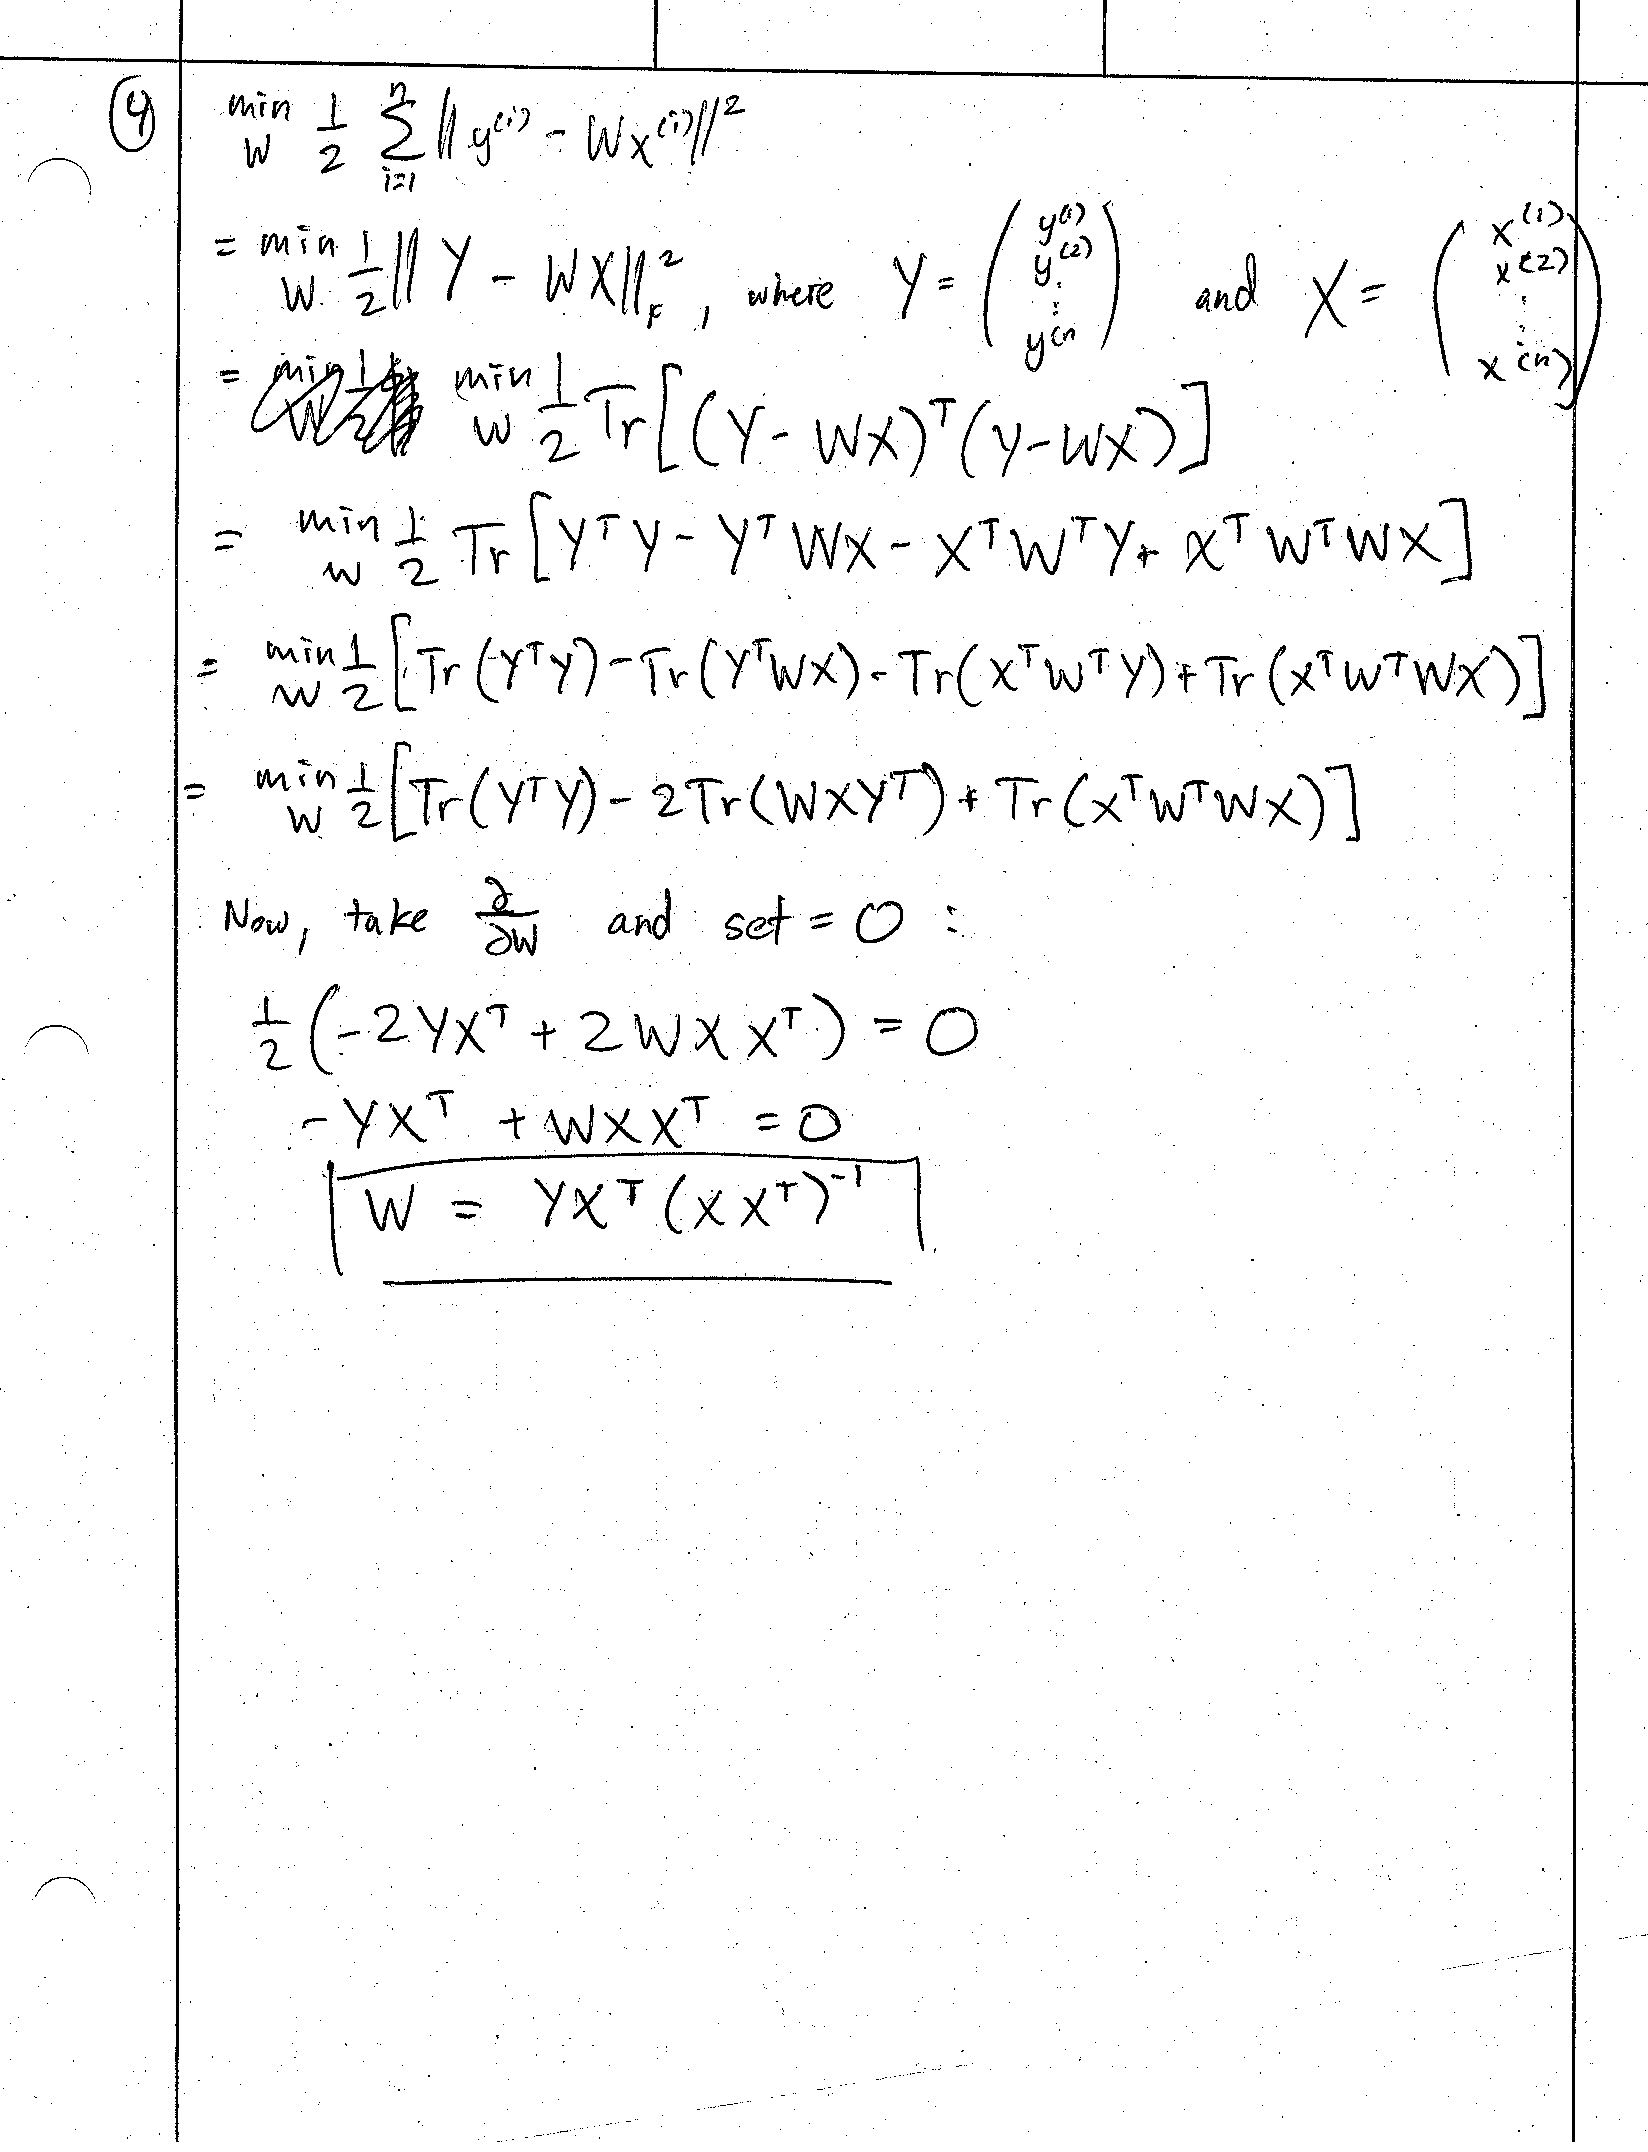 ④ min_W 1/2 Σ_{i=1}^{n} ||y^{(i)} - Wx^{(i)}||^2
= min_W 1/2 ||Y - WX||_F^2, where Y = (y^{(1)} y^{(2)} ⋮ y^{(n}) and X = (x^{(1)} x^{(2)} ⋮ x^{(n)})
= min_W 1/2 Tr[(Y-WX)^T(Y-WX)]
= min_W 1/2 Tr[Y^TY - Y^TWX - X^TW^TY + X^TW^TWX]
= min_W 1/2 [Tr(Y^TY) - Tr(Y^TWX) - Tr(X^TW^TY) + Tr(X^TW^TWX)]
= min_W 1/2 [Tr(Y^TY) - 2Tr(WXY^T) + Tr(X^TW^TWX)]
Now, take ∂/∂W and set = 0 :
1/2 (-2YX^T + 2WXX^T) = 0
-YX^T + WXX^T = 0
W = YX^T(XX^T)^{-1}